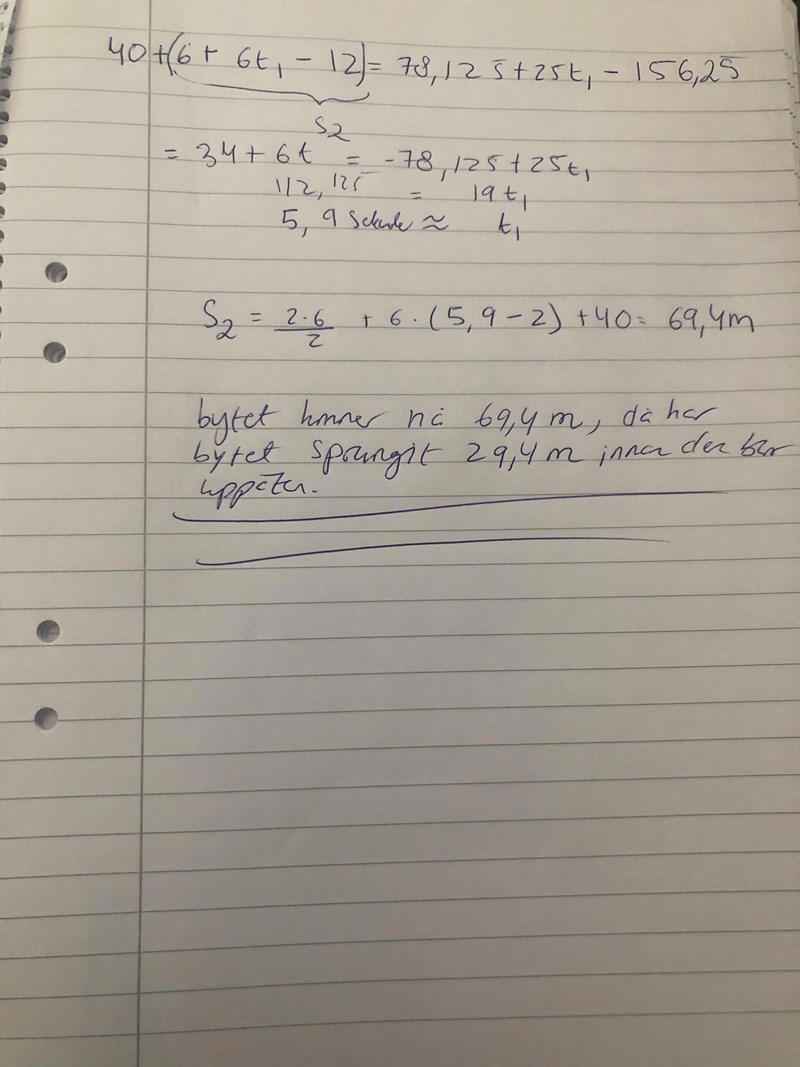 40 + (6 + 6t₁ - 12) = 78,125 + 25t₁ - 156,25
S₂
= 34 + 6t = -78,125 + 25t₁
112,125 = 19t₁
5,9 Sekunder ≈ t₁
S₂ = 2·6/2 + 6·(5,9-2) + 40 = 69,4m
bytet hinner nå 69,4 m, då har
bytet sprungit 29,4 m innan den blir
uppäten.